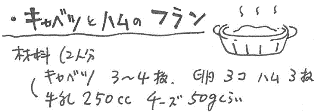 ・キャベツとハムのフラン
材料 (2人分)
キャベツ 3〜4枚、卵 3コ ハム 3枚
牛乳 250cc チーズ 50gぐらい